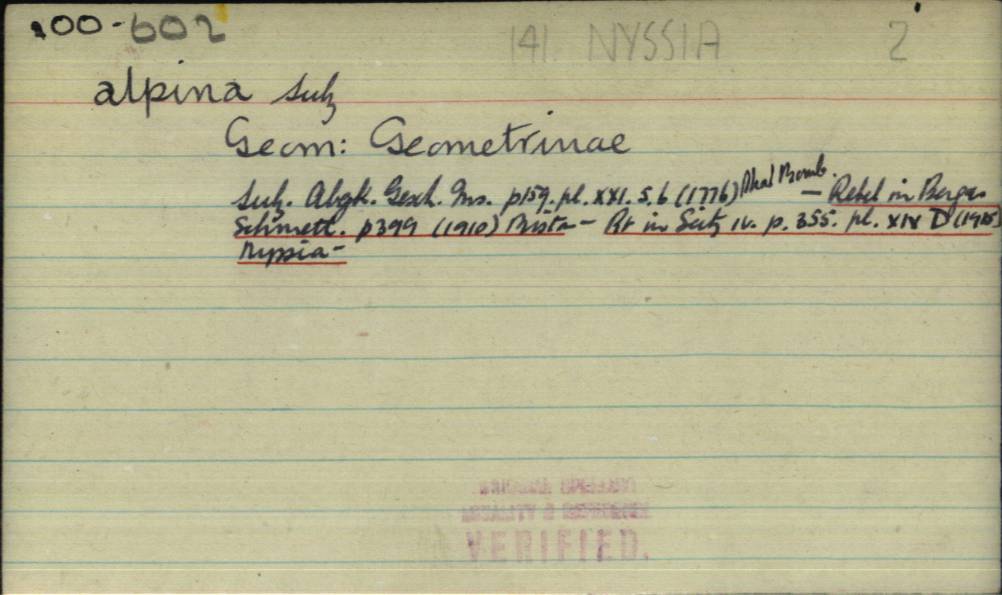 100-602
141. NYSSIA 2
alpina Sulz
Geom: Geometrinae
Sulz. Abgk. Gesch. Ins. p159. pl. XXI. 5.6 (1776) Phal Bomb. — Rebel in Berge
Schmett. p399 (1910) Biston — Pr in Seitz IV. p. 355. pl. XIX D (1915)
Nyssia —
VERIFIED.